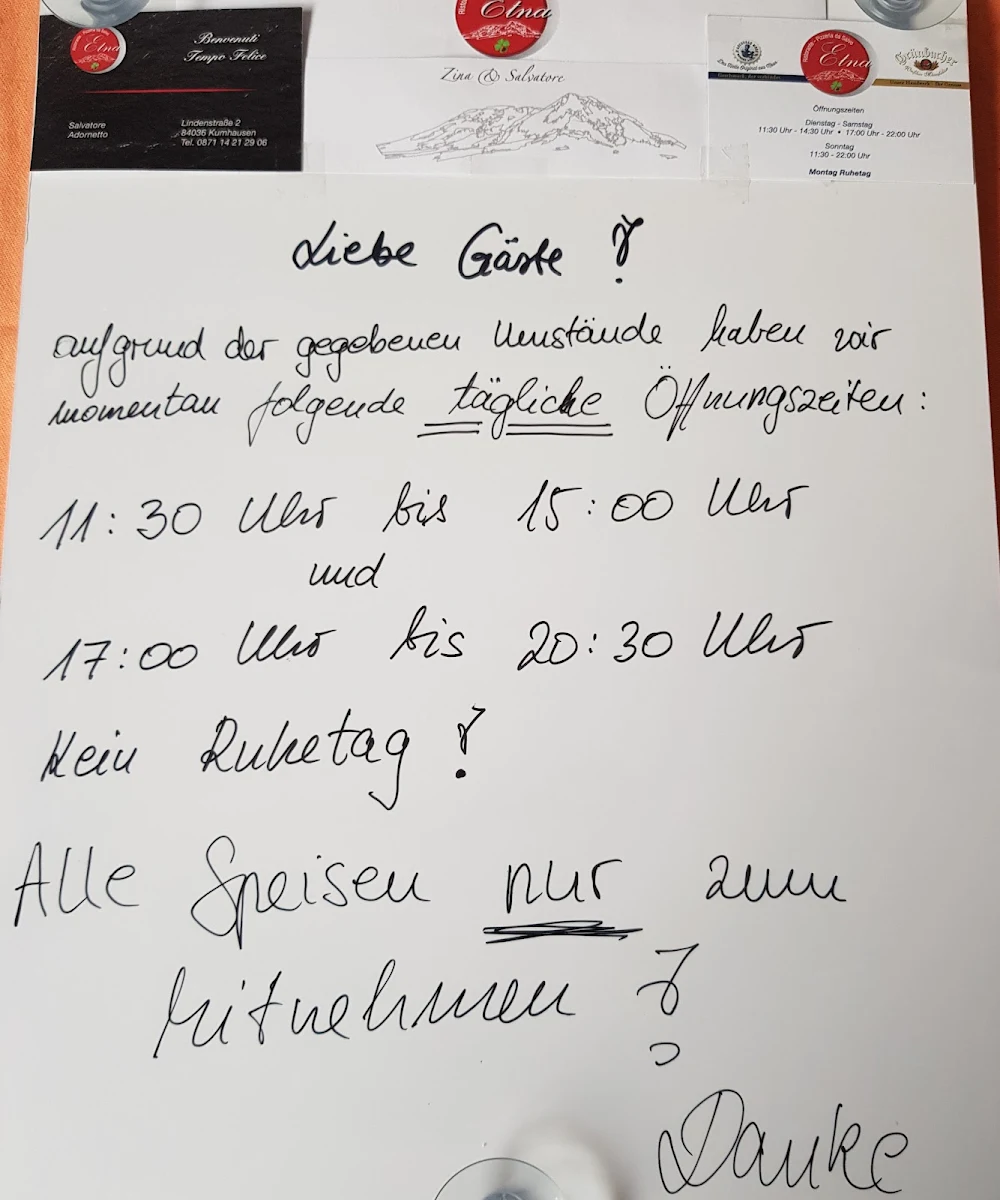 Etna
Benvenuti
Tempo Felice
Salvatore
Adornetto
Lindenstraße 2
84036 Kumhausen
Tel. 0871 14 21 29 06
Etna
Zina & Salvatore
Etna
Öffnungszeiten
Dienstag - Samstag
11:30 Uhr - 14:30 Uhr • 17:00 Uhr - 22:00 Uhr
Sonntag
11:30 - 22:00 Uhr
Montag Ruhetag
Liebe Gäste !
aufgrund der gegebenen Umstände haben wir
momentan folgende tägliche Öffnungszeiten:
11:30 Uhr bis 15:00 Uhr
und
17:00 Uhr bis 20:30 Uhr
Kein Ruhetag !
Alle Speisen nur zum
Mitnehmen !
Danke